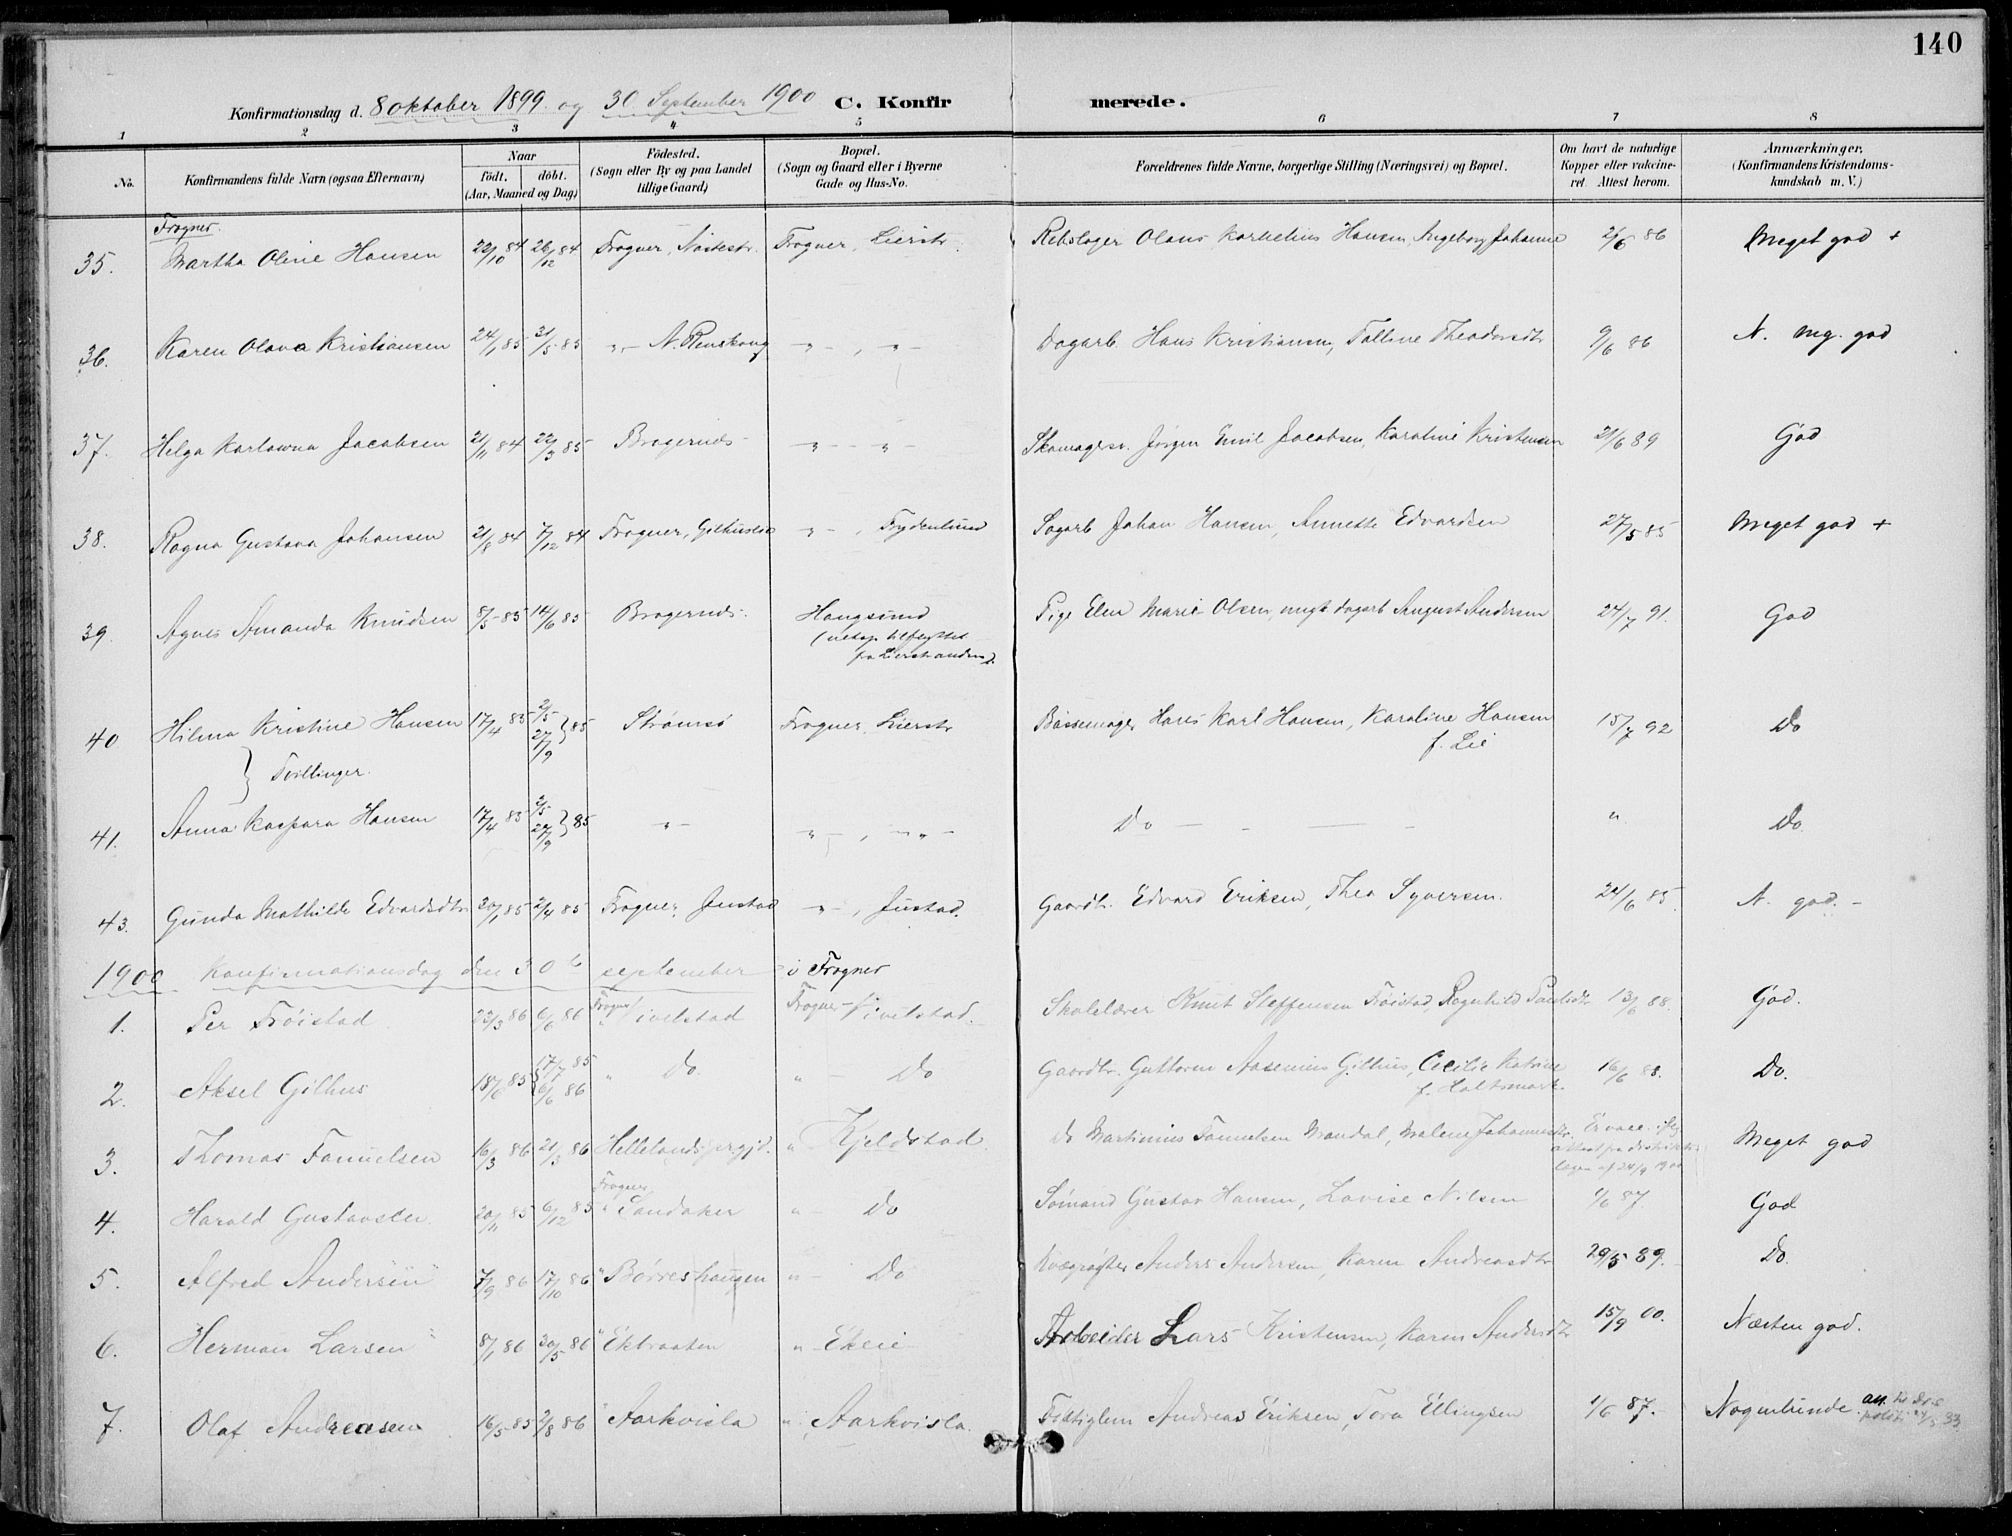 140
Konfirmationsdag d. 8 oktober 1899 og 30 September 1900 C. Konfirmerede.
1 2 3 4 5 6 7 8
No. Konfirmandens fulde Navn (ogsaa Efternavn) Naar födt. döbt. (Aar, Maaned og Dag) Födested. (Sogn eller By og paa Landet tillige Gaard) Bopæl. (Sogn og Gaard eller i Byerne Gade og Hus-No. Forældrenes fulde Navne, borgerlige Stilling (Næringsvei) og Bopæl. Om havt de naturlige Kopper eller vakcineret Attest herom. Anmærkninger. (Konfirmandens Kristendomskundskab m. V.)
Frogner.
35. Martha Oline Hansen 22/10 84 26/12 84 Frogner, Nöstestr. Frogner, Lierstr. Rebslager Olaus Karnelius Hansen, Ingeborg Johanne 2/6 86 Meget god +
36. Karen Olava Kristiansen 24/1 85 31/5 85 " - N. Renskoug " - , " - Dagarb. Hans Kristiansen, Talline Theodorsdtr 9/6 86 N. mg. god
37. Helga Karlowna Jacobsen 21/11 84 22/3 85 Bragernæs " - " Skomagersv. Jørgen Emil Jacobsen, Karoline Kristensen 21/6 89 God
38. Ragna Gustava Johansen 21/8 84 7/12 84 Frogner, Gilhus " - , Frydenlund Sagarb. Johan Hansen, Annette Edvardsen 27/5 85 Meget god +
39. Agnes Amanda Knudsen 8/5 85 14/6 85 Bragernæs Hougsund Pige Elen Marie Olsen, ungk. dagarb August Andersen 24/7 91. God
(netop tilflyttet
fra Lierstranden).
40 Hilma Kristine Hansen 17/4 85 2/5 27/9 } 85 Strømsø Frogner, Lierstr Børssemager Hans Karl Hansen, Karoline Hansen 15/7 92 Do
f. Lie
} Tvillinger.
41. Anna Kaspara Hansen 17/4 85 2/5 27/9 } 85 " - " - , - " - Do - - - - " Do
43. Gunda Mathilde Edvardsdtr 20/1 85 2/4 85 Frogner, Justad " - , Justad. Gaardbr. Edvard Eriksen, Thea Syversen. 24/6 85. N. god. -
1900 Konfirmationsdag den 30te september i Frogner
1. Per Trøistad 23/3 86 6/6 86 Frogner Sivelstad Frogner - Sivelstad. Skolelærer Knut Steffensen Trøistad, Ragnhild Paulsdtr 13/6 88. God.
2. Aksel Gilhus 18/6 85 17/7 85 6/6 86 " Do. " - Do Gaardbr. Guttorm Aasenius Gilhus, Cecilie Katrine 16/6 88. Do.
f. Holtsmark.
3. Thomas Fanuelsen 16/3 86 21/3 86 Hellelands prgjd. " Kjeldstad Do Martinius Fanuelsen Mandal, Malene Johannesdtr. Er vacc. ifлg attest fra distriktslægen af 24/9 1900 Meget god
4. Harald Gustavsen 20/11 85 6/12 85 Frogner " Landaker " - Do Sømand Gustav Hansen, Lovise Nilsen 1/6 87. God
5. Alfred Andersen 7/9 86 17/10 86 " Børreshaugen " - Do Anders Andersen, Karen Andreasdtr 29/5 89. Do.
6. Herman Larsen 8/1 86 30/5 86 " Ekbraaten " - Ekeie Arbeider Lars Kristensen, Karen Andersdtr 15/9 00. Næsten god.
7. Olaf Andreasen 16/5 85 2/8 86 " Aarkvisla " Aarkvisla. Andreas Eriksen, Tora Ellingsen 1/6 87. Nogenlunde.